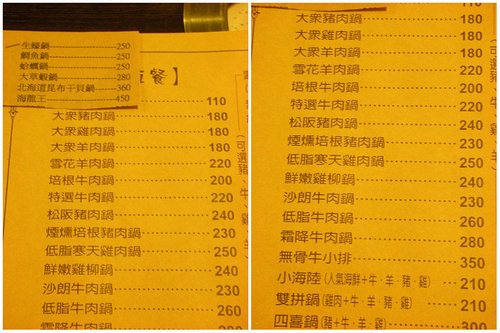 生蠔鍋 250
鯛魚鍋 250
蛤蠣鍋 250
大草蝦鍋 280
北海道昆布干貝鍋 360
海龍王 450
餐】
110
大眾豬肉鍋 180
大眾雞肉鍋 180
大眾羊肉鍋 180
雪花羊肉鍋 220
培根牛肉鍋 200
特選牛肉鍋 220
松阪豬肉鍋 240
煙燻培根豬肉鍋 230
低脂寒天雞肉鍋 250
鮮嫩雞柳鍋 240
沙朗牛肉鍋 230
低脂牛肉鍋 260
霜降牛肉鍋
大眾豬肉鍋 180
大眾雞肉鍋 180
大眾羊肉鍋 180
雪花羊肉鍋 220
培根牛肉鍋 200
特選牛肉鍋 220
松阪豬肉鍋 240
煙燻培根豬肉鍋 230
低脂寒天雞肉鍋 250
鮮嫩雞柳鍋 240
沙朗牛肉鍋 230
低脂牛肉鍋 260
霜降牛肉鍋 280
無骨牛小排 350
小海陸(人氣海鮮+牛、羊、豬、雞) 210
雙拼鍋(雞肉+牛、羊、豬、雞) 210
四喜鍋(豬+牛、羊、雞) 300